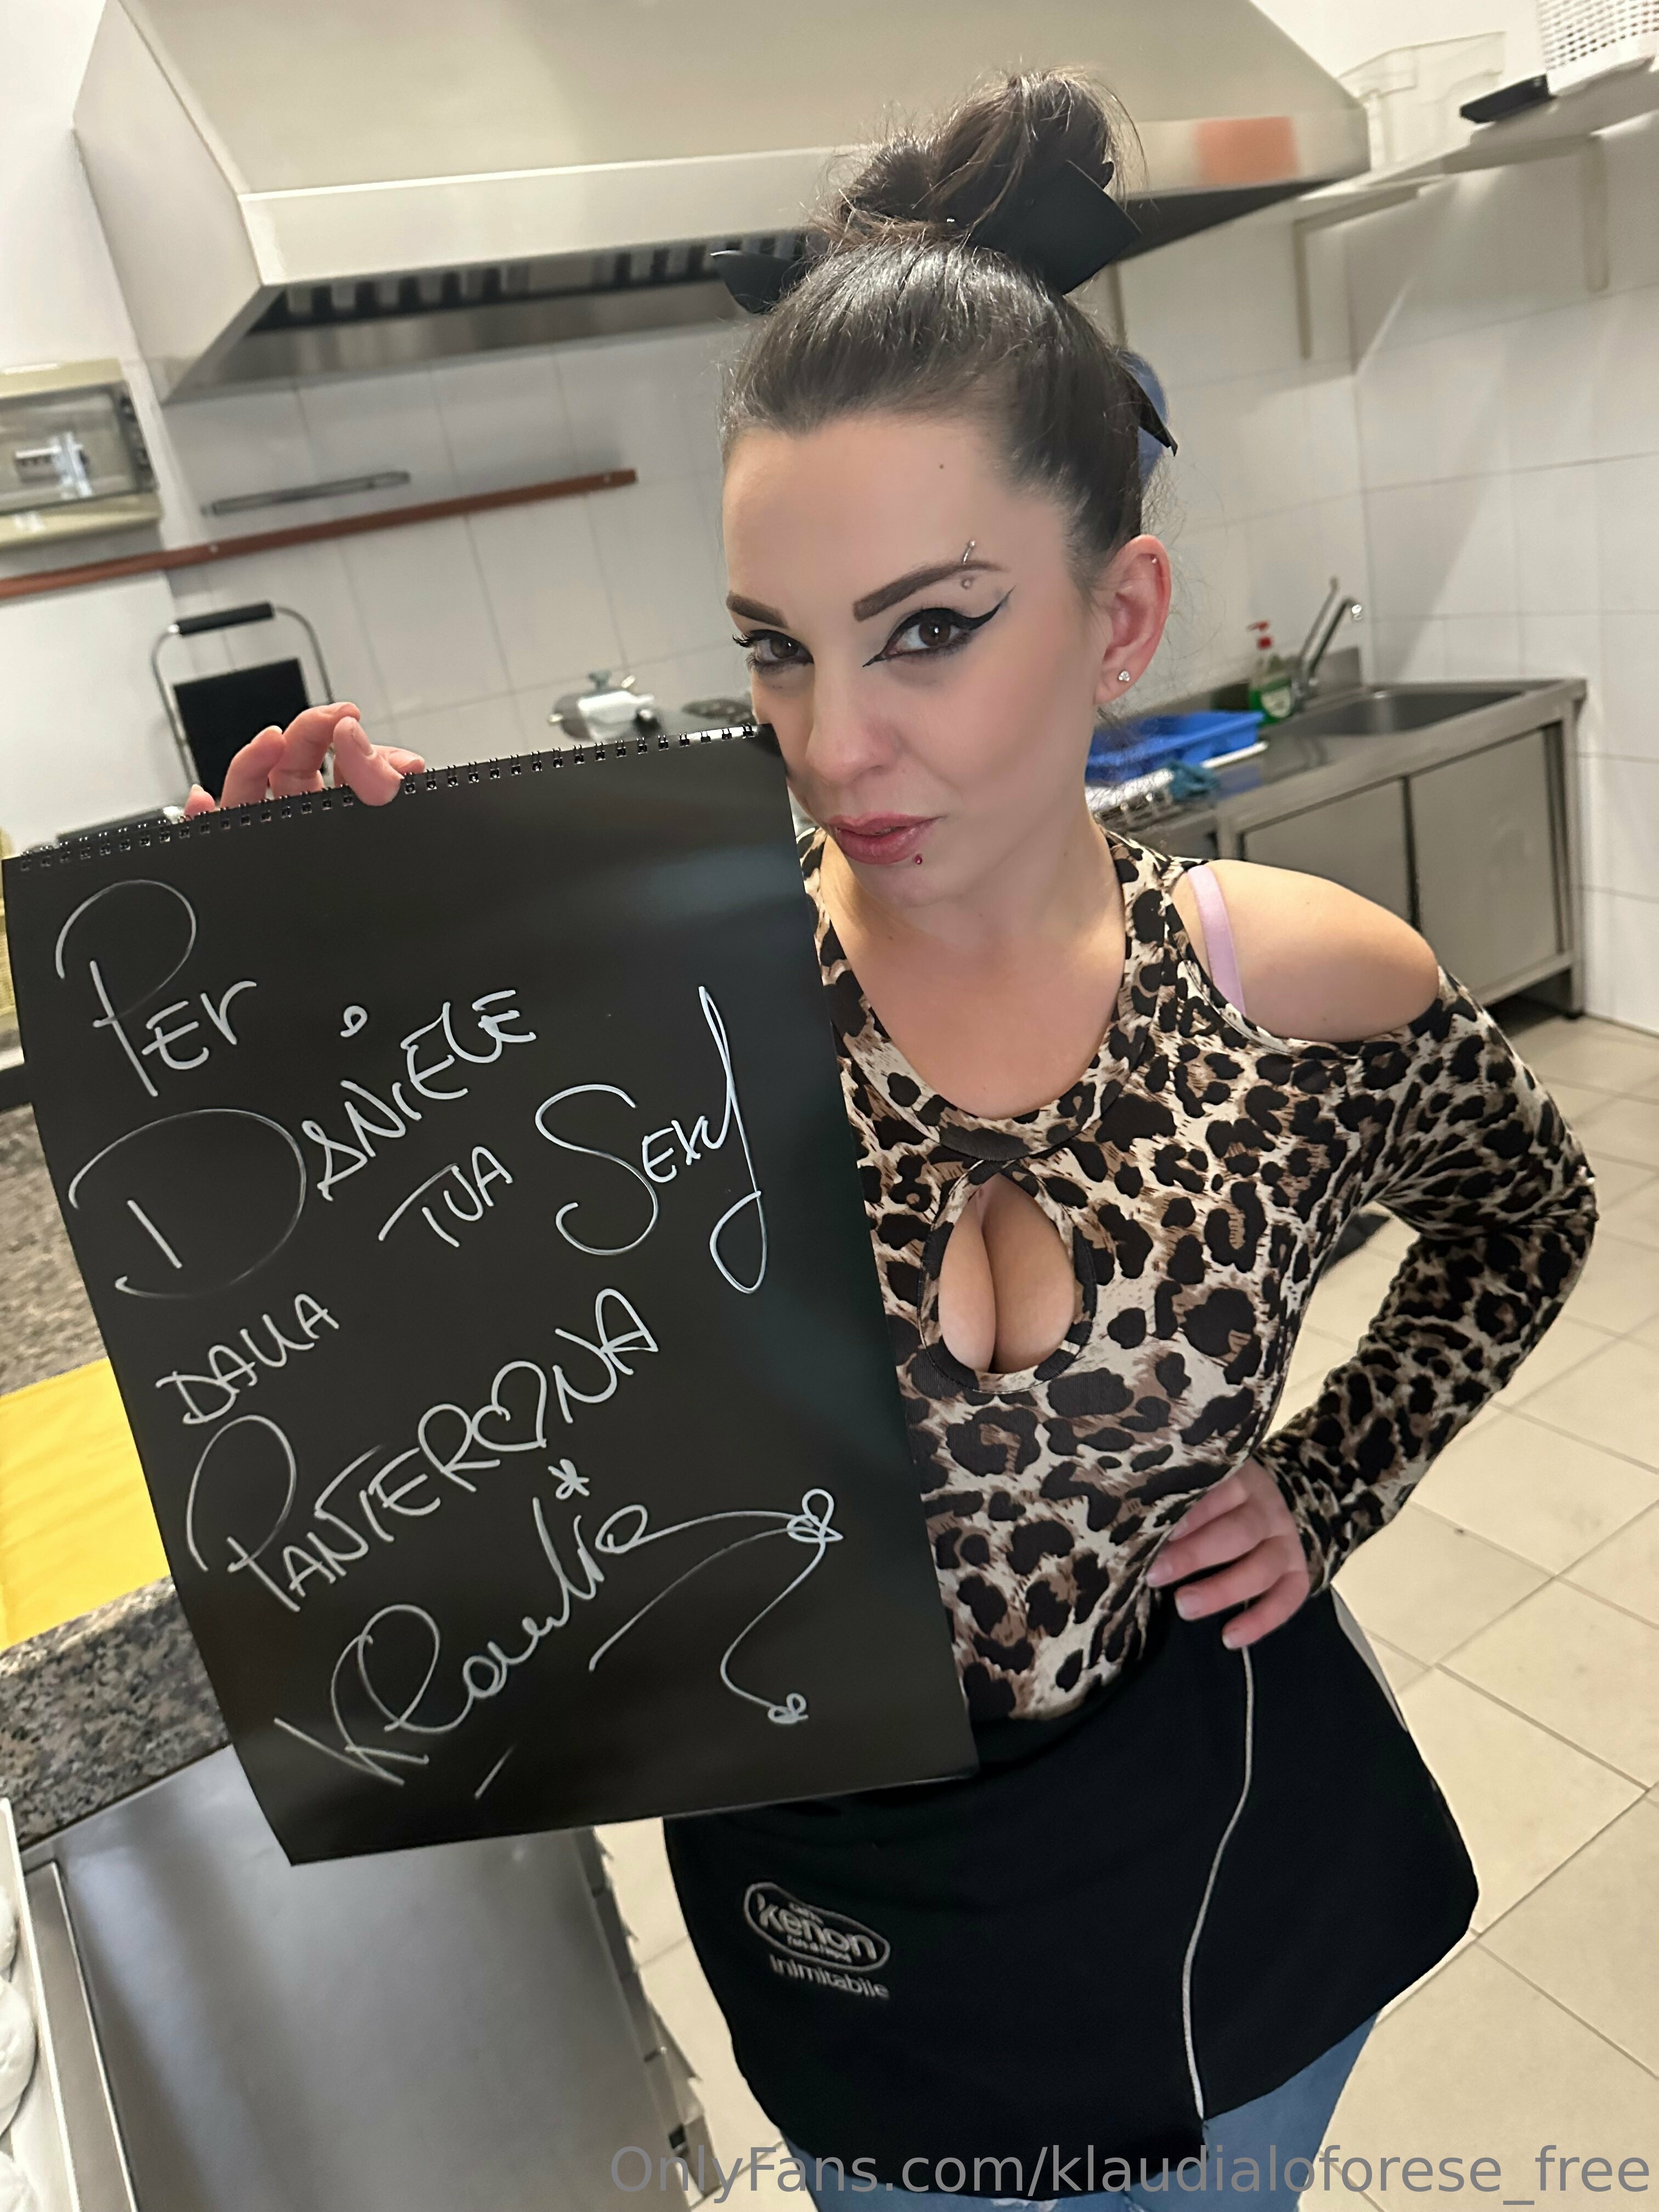 Per
DANiELE
DALLA TUA Sexy
PANTERONA
Klaudia
kenon
inimitabile
OnlyFans.com/klaudialoforese_free